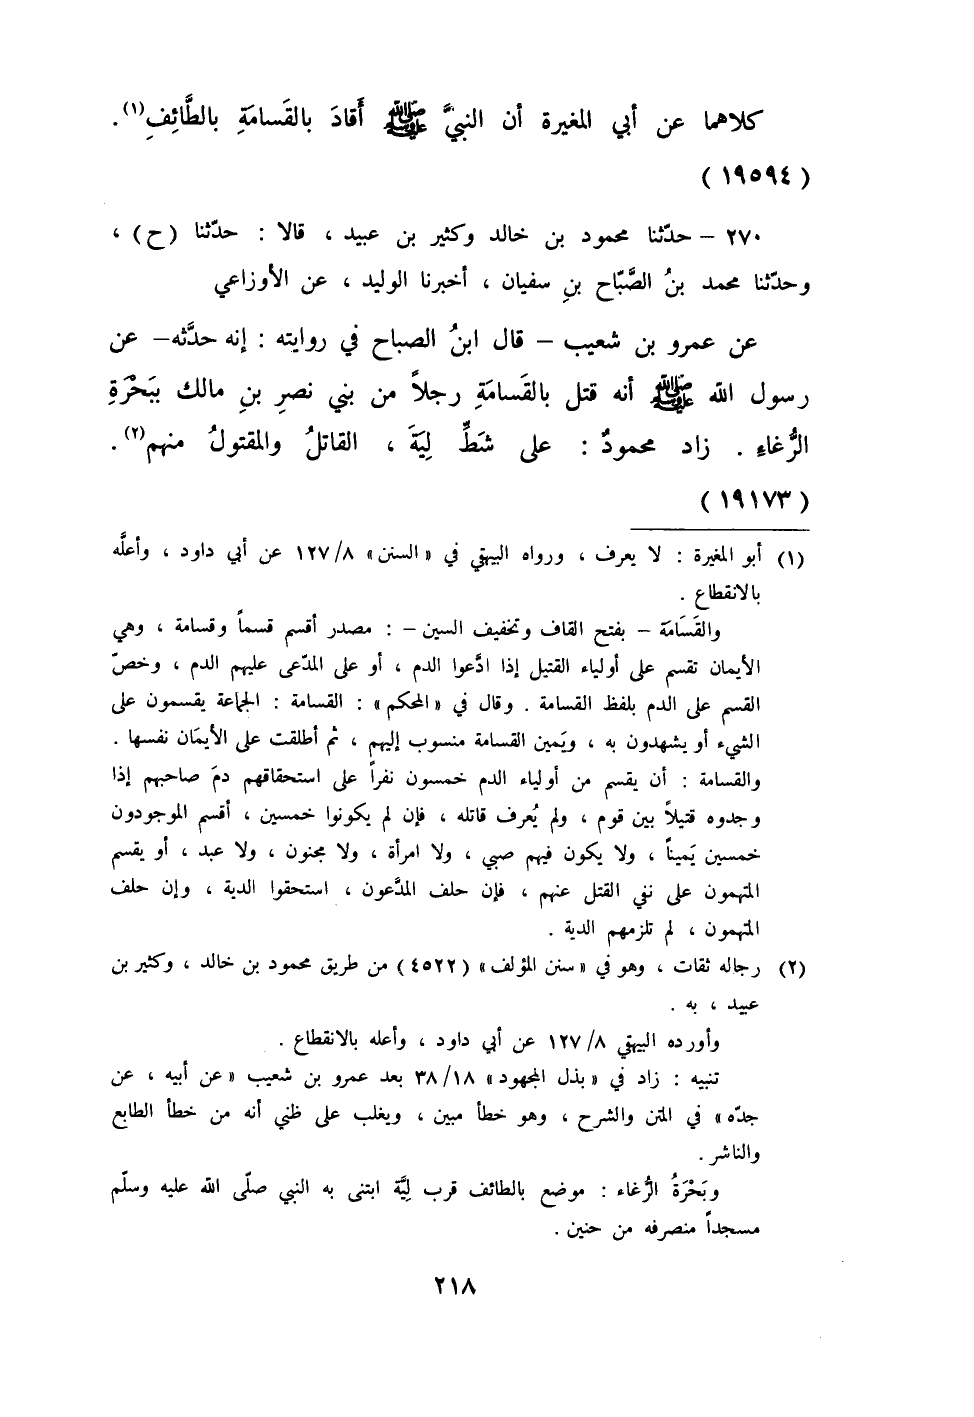 كلاهما عن أبي المغيرة أن النبيَّ ﷺ أَقادَ بالقَسامَةِ بالطَّائِفِ(١) .
(١٩٥٩٤)
٢٧٠ – حدّثنا محمود بن خالد وكثير بن عبيد ، قالا : حدّثنا (ح) ،
وحدّثنا محمد بنُ الصَّبّاح بنِ سفيان ، أخبرنا الوليد ، عن الأوزاعي
عن عمرو بن شعيب – قال ابنُ الصباح في روايته : إنه حدَّثه– عن
رسول الله ﷺ أنه قتل بالقَسامَةِ رجلاً من بني نصرِ بنِ مالك ببَحْرَةِ
الرُّغاءِ . زاد محمودٌ : على شَطِّ لِيَةَ ، القاتلُ والمقتولُ منهم(٢) .
(١٩١٧٣)
(١) أبو المغيرة : لا يعرف ، ورواه البيهقي في «السنن» ١٢٧/٨ عن أبي داود ، وأعلَّه
بالانقطاع .
والقَسَامَة – بفتح القاف وتخفيف السين – : مصدر أقسم قسماً وقسامة ، وهي
الأيمان تقسم على أولياء القتيل إذا ادَّعوا الدم ، أو على المدّعى عليهم الدم ، وخصّ
القسم على الدم بلفظ القسامة . وقال في «المحكم» : القسامة : الجماعة يقسمون على
الشيء أو يشهدون به ، ويَمين القسامة منسوب إليهم ، ثم أطلقت على الأيمَان نفسها .
والقسامة : أن يقسم من أولياء الدم خمسون نفراً على استحقاقهم دمَ صاحبهم إذا
وجدوه قتيلاً بين قوم ، ولم يُعرف قاتله ، فإن لم يكونوا خمسين ، أقسم الموجودون
خمسين يَميناً ، ولا يكون فيهم صبي ، ولا امرأة ، ولا مجنون ، ولا عبد ، أو يقسم
المتهمون على نفي القتل عنهم ، فإن حلف المدَّعون ، استحقوا الدية ، وإن حلف
المتهمون ، لم تلزمهم الدية .
(٢) رجاله ثقات ، وهو في «سنن المؤلف» (٤٥٢٢) من طريق محمود بن خالد ، وكثير بن
عبيد ، به .
وأورده البيهقي ١٢٧/٨ عن أبي داود ، وأعله بالانقطاع .
تنبيه : زاد في «بذل المجهود» ٣٨/١٨ بعد عمرو بن شعيب «عن أبيه ، عن
جدّه» في المتن والشرح ، وهو خطأ مبين ، ويغلب على ظني أنه من خطأ الطابع
والناشر .
وبَحْرَةُ الرُّغاء : موضع بالطائف قرب لِيَّة ابتنى به النبي صلّى الله عليه وسلّم
مسجداً منصرفه من حنين .
٢١٨